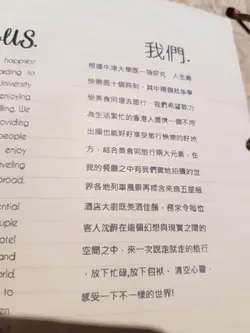 us.
happiest
ording to
University
enjoying
lling. We
oviding
people
enjoy
velling
road.
ential
ouple
otel
and
orld.
我們.
根據牛津大學既一項研究 人生最
快樂既十個時刻，其中兩個就係享
受美食同埋去旅行，我們希望致力
為生活繁忙的香港人提供一個不用
出國也能好好享受旅行快樂的好地
方，結合美食同旅行兩大元素，在
我的餐廳之中有我們實地拍攝的世
界各地列車風景再糅合來自五星級
酒店大廚既美酒佳餚，務求令每位
客人沈醉在這個幻想與現實之間的
空間之中，來一次說走就走的旅行
，放下忙碌,放下包袱，清空心靈，
感受一下不一樣的世界!